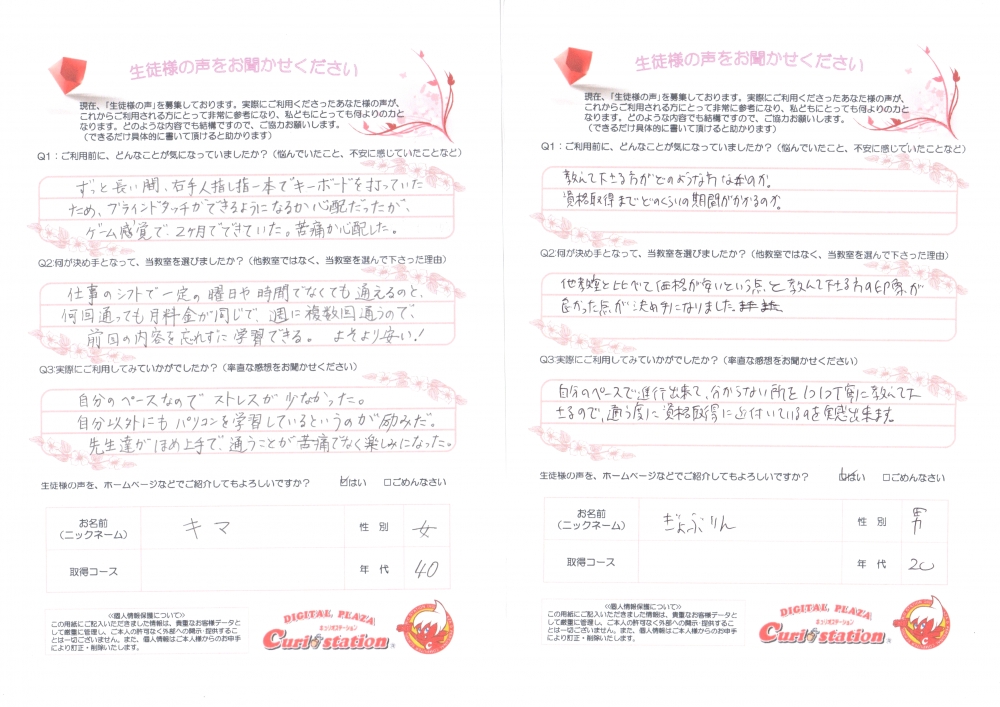 生徒様の声をお聞かせください
現在、「生徒様の声」を募集しております。実際にご利用くださったあなた様の声が、
これからご利用される方にとって非常に参考になり、私どもにとっても何よりの力と
なります。どのような内容でも結構ですので、ご協力お願いします。
(できるだけ具体的に書いて頂けると助かります)
Q1:ご利用前に、どんなことが気になっていましたか?(悩んでいたこと、不安に感じていたことなど)
ずっと長い間、右手人指し指一本でキーボードを打っていた
ため、ブラインドタッチができるようになるか心配だったが、
ゲーム感覚で、2ヶ月でできていた。苦痛か心配した。
Q2:何が決め手となって、当教室を選びましたか?(他教室ではなく、当教室を選んで下さった理由)
仕事のシフトで一定の曜日や時間でなくても通えるのと、
何回通っても月料金が同じで、週に複数回通うので、
前回の内容を忘れずに学習できる。 よそより安い!
Q3:実際にご利用してみていかがでしたか?(率直な感想をお聞かせください)
自分のペースなので ストレスが少なかった。
自分以外にもパソコンを学習しているというのが励みだ。
先生達がほめ上手で、通うことが苦痛でなく楽しみになった。
生徒様の声を、ホームページなどでご紹介してもよろしいですか? ☑はい □ごめんなさい
お名前
(ニックネーム)
キマ
性 別
女
取得コース
年 代
40
<<個人情報保護について>>
この用紙にご記入いただきました情報は、貴重なお客様データと
して厳重に管理し、ご本人の許可なく外部への開示・提供するこ
とは一切ございません。また、個人情報はご本人様からのお申手
により訂正・削除いたします。
DIGITAL PLAZA
キュリオステーション
Curio station
生徒様の声をお聞かせください
現在、「生徒様の声」を募集しております。実際にご利用くださったあなた様の声が、
これからご利用される方にとって非常に参考になり、私どもにとっても何よりの力と
なります。どのような内容でも結構ですので、ご協力お願いします。
(できるだけ具体的に書いて頂けると助かります)
Q1:ご利用前に、どんなことが気になっていましたか?(悩んでいたこと、不安に感じていたことなど)
教えて下さる方がどのような方なのか。
資格取得までどのくらいの期間がかかるのか。
Q2:何が決め手となって、当教室を選びましたか?(他教室ではなく、当教室を選んで下さった理由)
他教室と比べて価格が安いという点と教えて下さる方の印象が
良かった点が決め手になりました
Q3:実際にご利用してみていかがでしたか?(率直な感想をお聞かせください)
自分のペースで進行出来て、分からない所を1つ1つ丁寧に教えて下
さるので、通う度に資格取得に近付いているのを実感出来ます。
生徒様の声を、ホームページなどでご紹介してもよろしいですか? ☑はい □ごめんなさい
お名前
(ニックネーム)
ぎょぶりん
性 別
男
取得コース
年 代
20
<<個人情報保護について>>
この用紙にご記入いただきました情報は、貴重なお客様データと
して厳重に管理し、ご本人の許可なく外部への開示・提供するこ
とは一切ございません。また、個人情報はご本人様からのお申手
により訂正・削除いたします。
DIGITAL PLAZA
キュリオステーション
Curio station